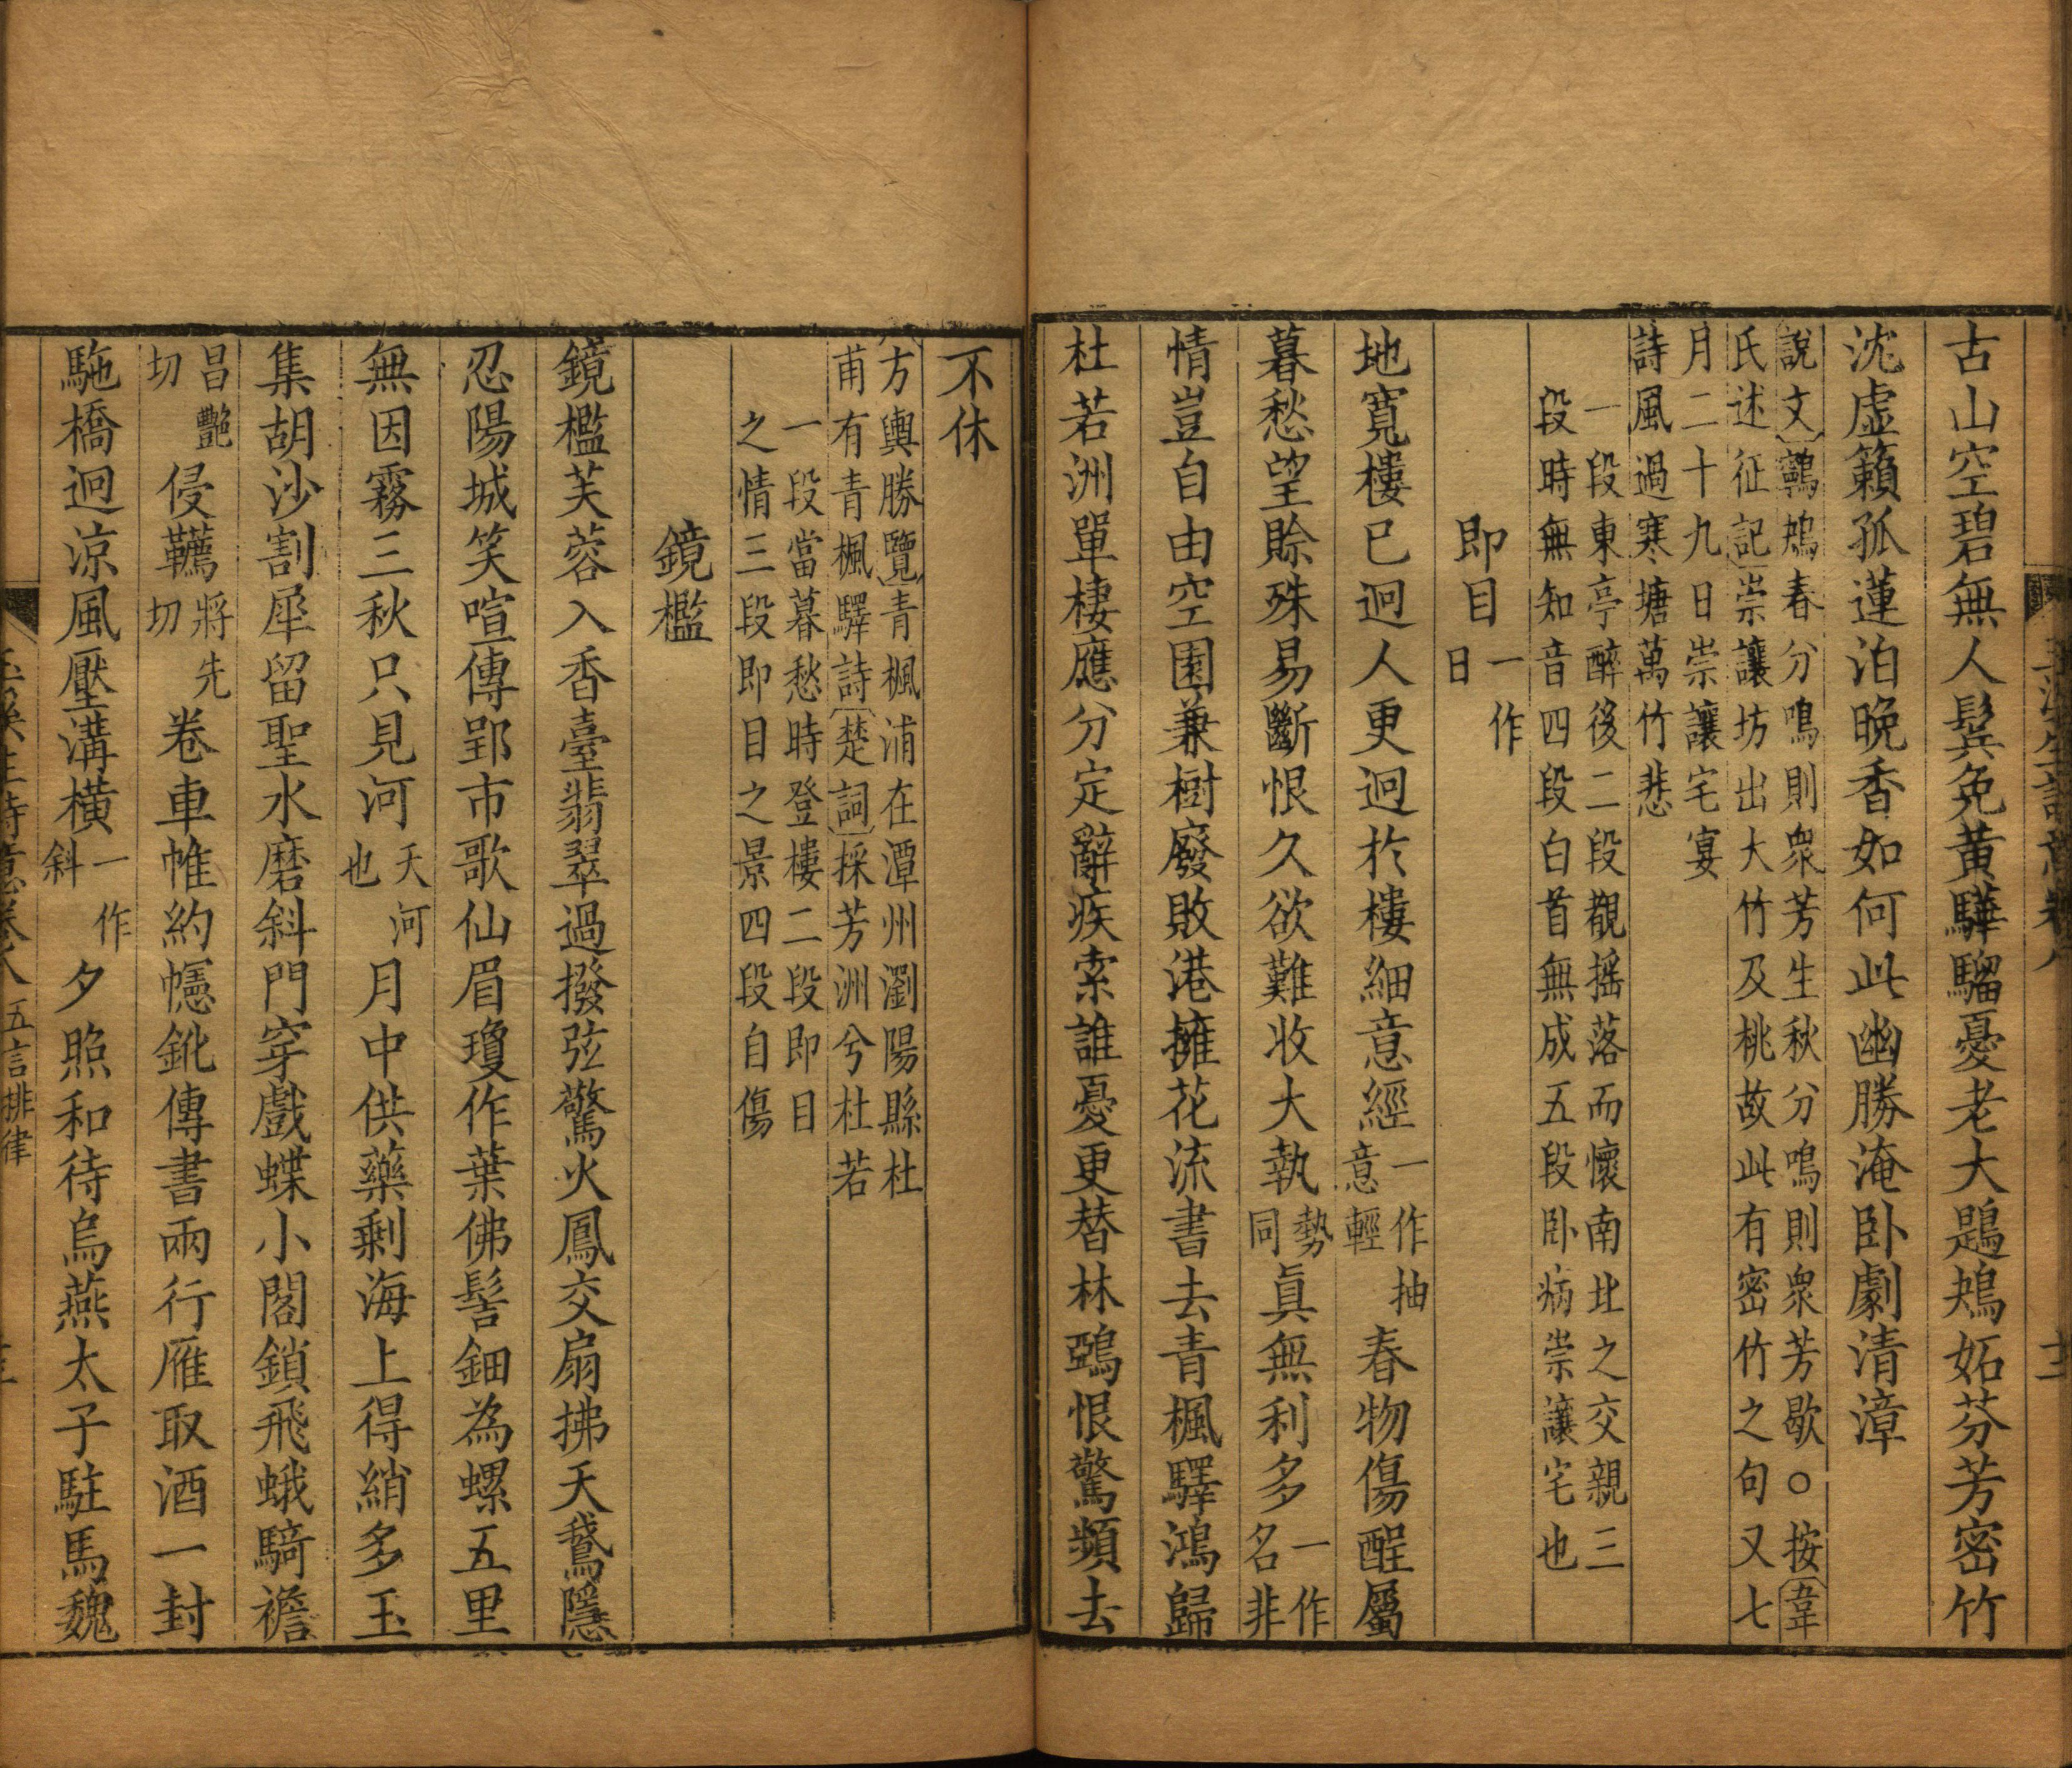 古山空碧無人鬓免黃驊騮憂老大鶗鴂妬芬芳密竹
沈虛籟孤蓮泊晚香如何此幽勝淹卧劇清漳
說文鷤鴂春分鳴則衆芳生秋分鳴則衆芳歇○按韋
氏述征記崇讓坊出大竹及桃故此有密竹之句又七
月二十九日崇讓宅宴
詩風過寒塘萬竹悲
一段東亭醉後二段觀摇落而懷南北之交親三
段時無知音四段白首無成五段卧病崇讓宅也
即目一作日
地寬樓已迥人更迥於樓細意經一作抽意輕春物傷酲屬
暮愁望賒殊易斷恨久欲難收大執勢同眞無利多一作名非
情豈自由空園兼樹廢敗港擁花流書去青楓驛鴻歸
杜若洲單棲應分定辭疾索誰憂更替林鵶恨驚頻去
不休
方輿勝覽青楓浦在潭州瀏陽縣杜
甫有青楓驛詩楚詞採芳洲兮杜若
一段當暮愁時登樓二段即目
之情三段即目之景四段自傷
鏡檻
鏡檻芙蓉入香臺翡翠過撥弦驚火鳳交扇拂天鵞隱
忍陽城笑喧傳郢市歌仙眉瓊作葉佛髻鈿為螺五里
無因霧三秋只見河天河也月中供藥剩海上得綃多玉
集胡沙割犀留聖水磨斜門穿戲蝶小閣鎖飛蛾騎襜
昌艷切侵韉將先切卷車帷約幰鈋傳書兩行雁取酒一封
駞橋迥涼風壓溝橫一作斜夕照和待烏燕太子駐馬魏
玉溪生詩意卷八 五言排律